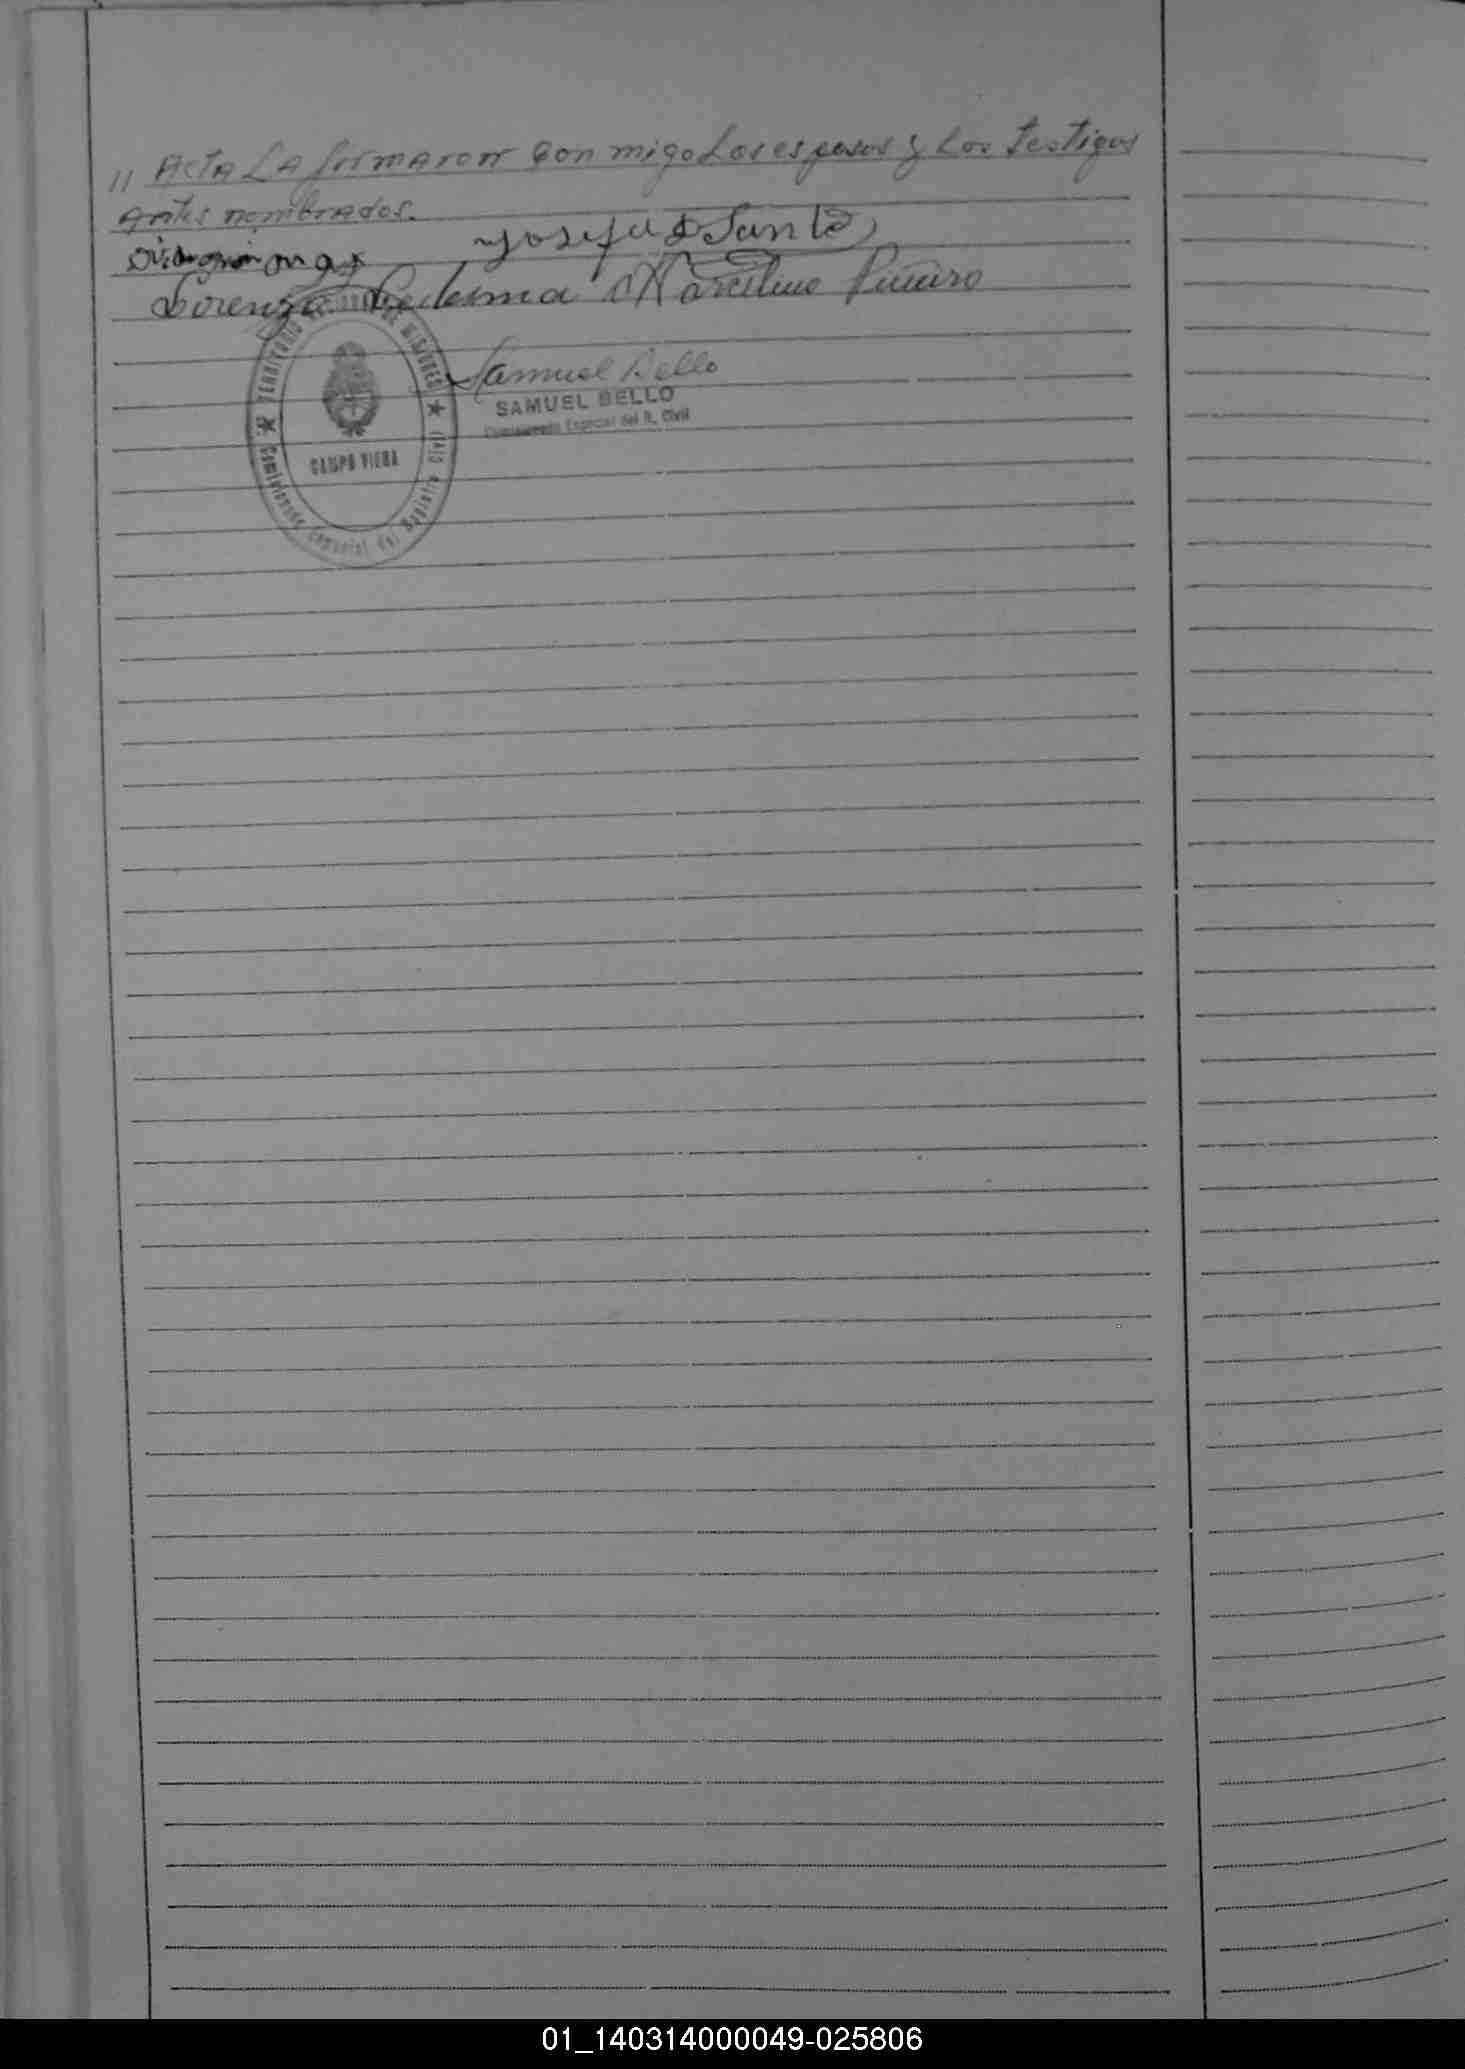 11 Acta La firmaron con migo Los esposos y Los testigos
antes nombrados.
Josefa D Santo
Lorenzo Ledesma Marcelino Piñeiro
Samuel Bello
SAMUEL BELLO
Comisionado Especial del R. Civil
TERRITORIO DE MISIONES
CAMPO VIERA
Comisionado Especial del Registro Civil
01_140314000049-025806